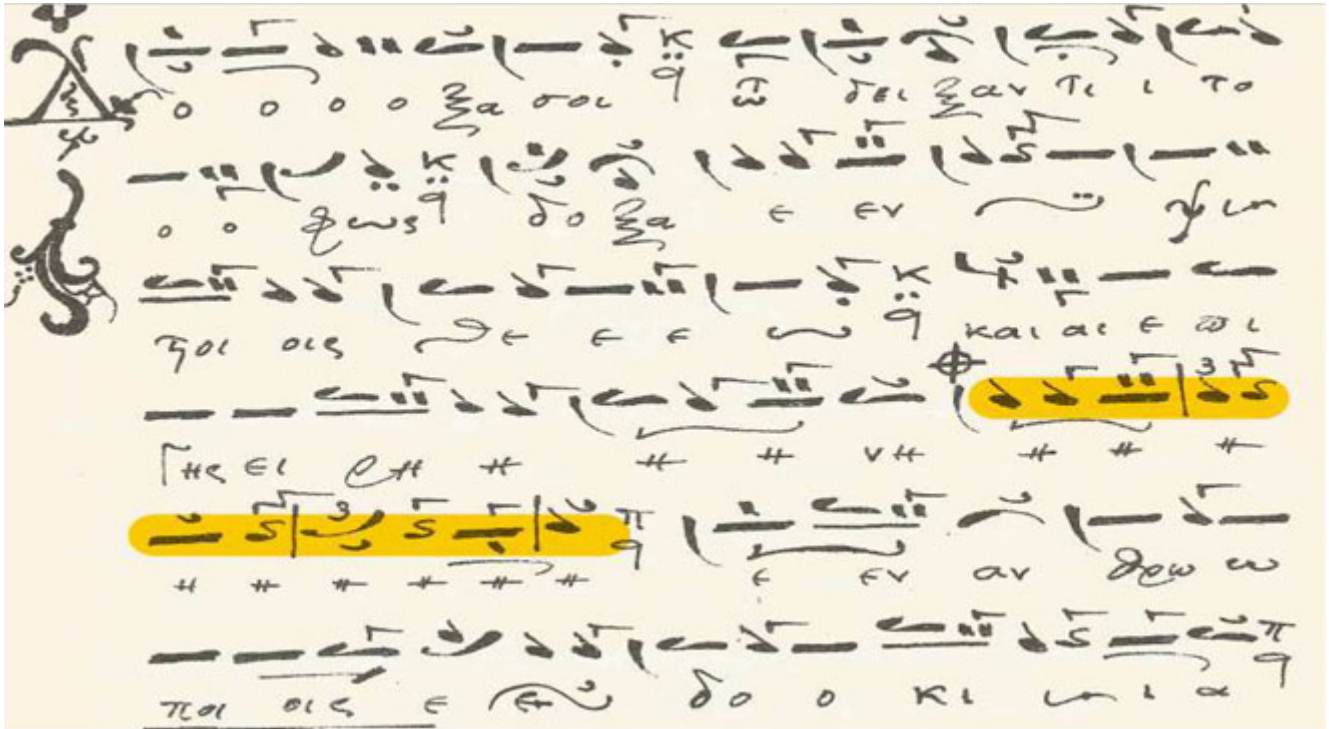 Δ ο ο ο ο ξα σοι τῳ δει ξαν τι ι το
ο ο φως δο ξα ε εν υ ψι
στοι οις Θε ε ε ω και αι ε πι
γης ει ρη η η η νη η η η
η η η η η η ε εν αν θρω ω
ποι οις ε ευ δο ο κι ι ι α